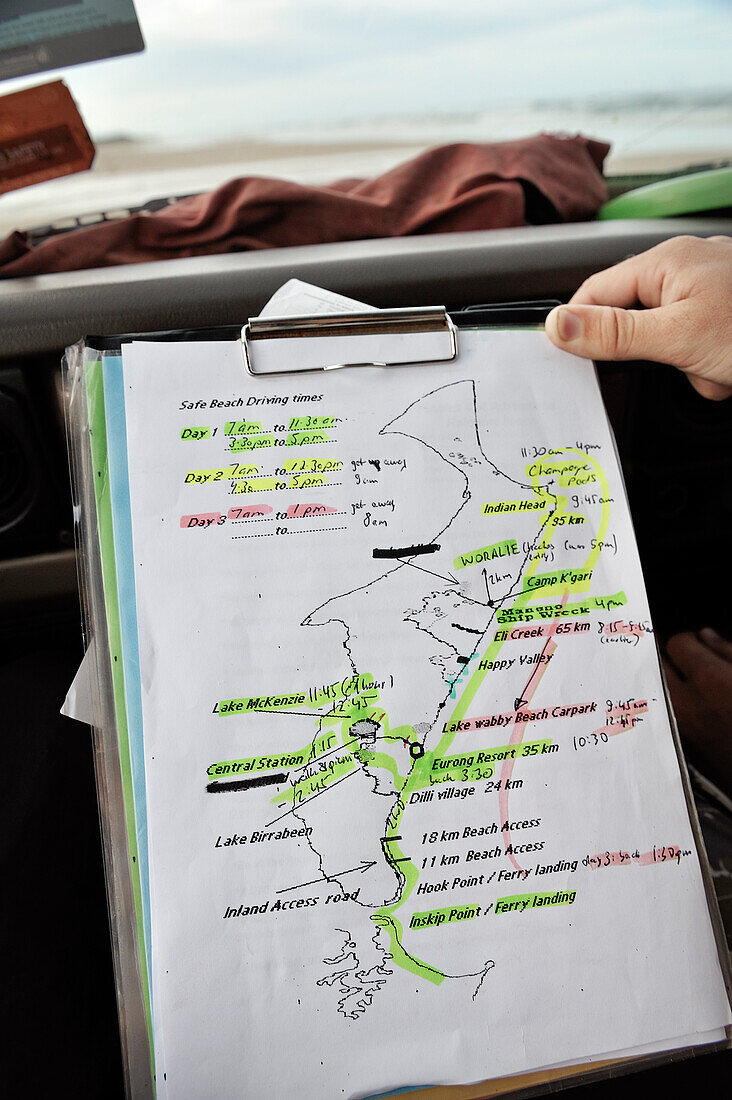 Safe Beach Driving times
Day 1 7am to 11.30am
3.30pm to 5pm
Day 2 7am to 12.30pm get away
4.30 to 5pm 9am
Day 3 7am to 1pm get away
to 8am
11:30am - 4pm
Champagne
Pools
Indian Head 9:45am
95 km
WORALIE
2km
Camp K'gari
Maheno 4pm
Ship Wreck
Eli Creek 65 km 8:15-
Happy Valley
Lake McKenzie 11:45 (1 hour)
12:45
Lake wabby Beach Carpark 9:45am
12:45pm
Central Station 1:15
Eurong Resort 35 km 10:30
back 3:30
2:45
Dilli village 24 km
Lake Birrabeen
18 km Beach Access
11 km Beach Access
Hook Point / Ferry landing day 3: back 1:30pm
Inland Access road
Inskip Point / Ferry landing